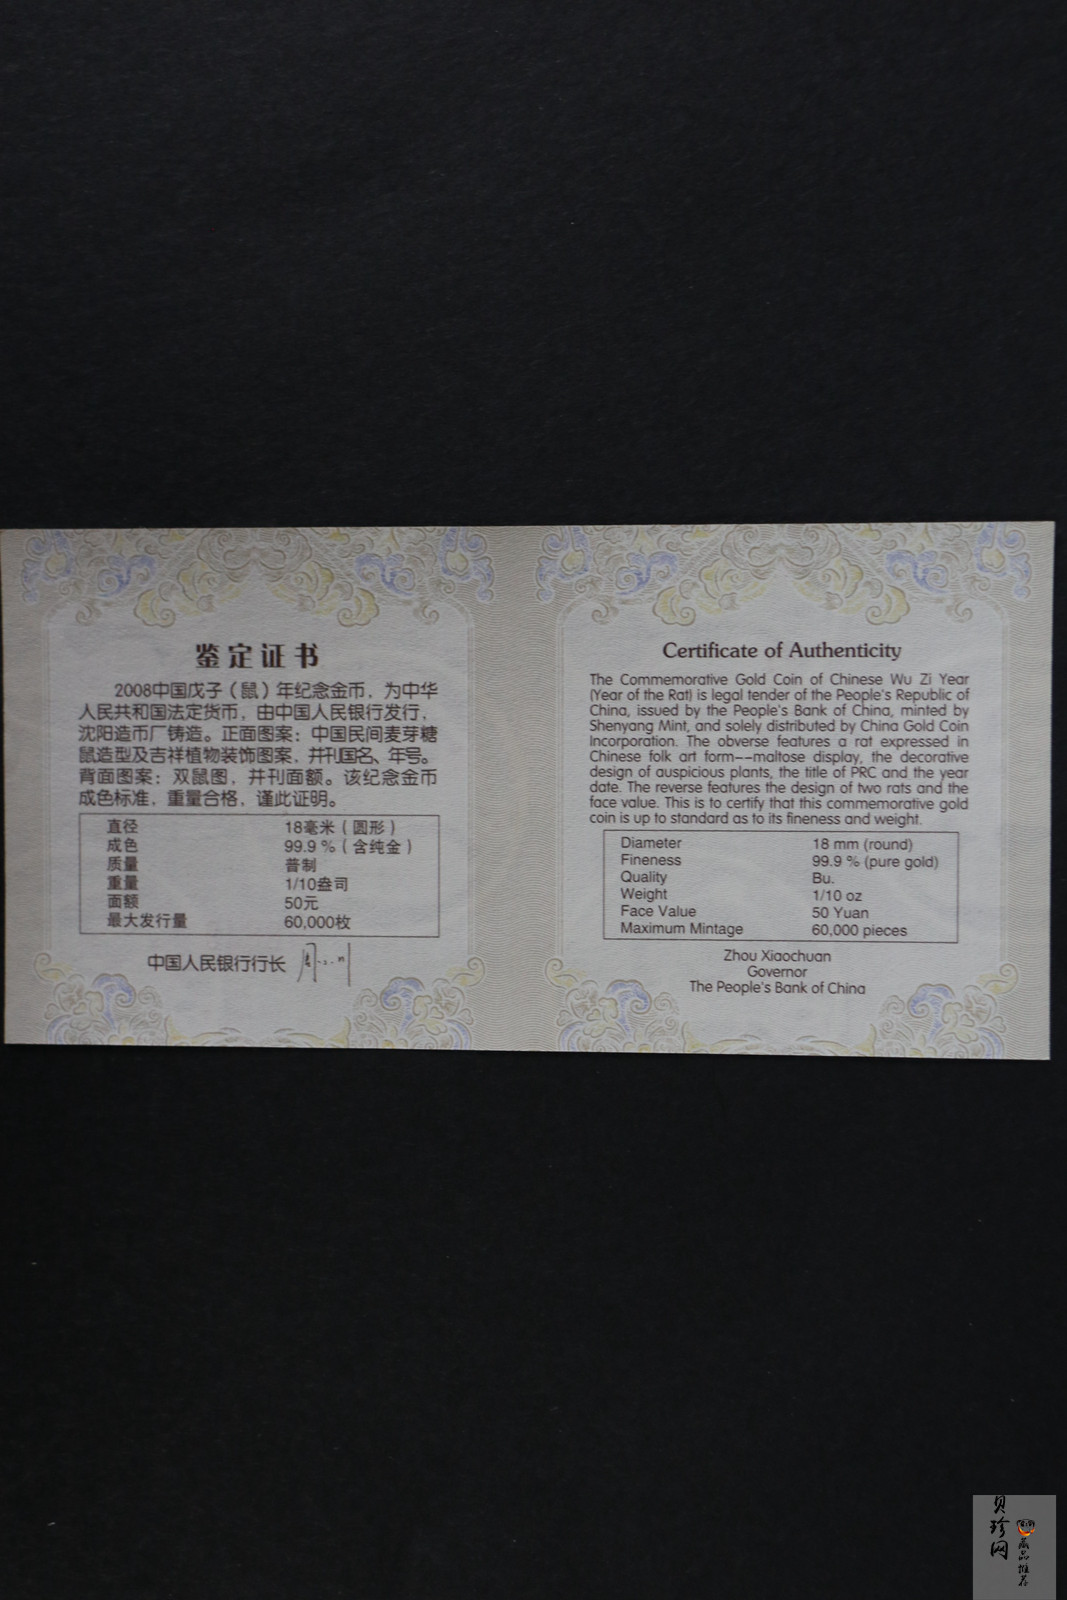 鉴定证书
2008中国戊子（鼠）年纪念金币，为中华
人民共和国法定货币，由中国人民银行发行，
沈阳造币厂铸造。正面图案：中国民间麦芽糖
鼠造型及吉祥植物装饰图案，并刊国名、年号。
背面图案：双鼠图，并刊面额。该纪念金币
成色标准，重量合格，谨此证明。
直径 18毫米（圆形）
成色 99.9 %（含纯金）
质量 普制
重量 1/10盎司
面额 50元
最大发行量 60,000枚
中国人民银行行长
Certificate of Authenticity
The Commemorative Gold Coin of Chinese Wu Zi Year
(Year of the Rat) is legal tender of the People's Republic of
China, issued by the People's Bank of China, minted by
Shenyang Mint, and solely distributed by China Gold Coin
Incorporation. The obverse features a rat expressed in
Chinese folk art form--maltose display, the decorative
design of auspicious plants, the title of PRC and the year
date. The reverse features the design of two rats and the
face value. This is to certify that this commemorative gold
coin is up to standard as to its fineness and weight.
Diameter 18 mm (round)
Fineness 99.9 % (pure gold)
Quality Bu.
Weight 1/10 oz
Face Value 50 Yuan
Maximum Mintage 60,000 pieces
Zhou Xiaochuan
Governor
The People's Bank of China
贝珍网
藏品推荐